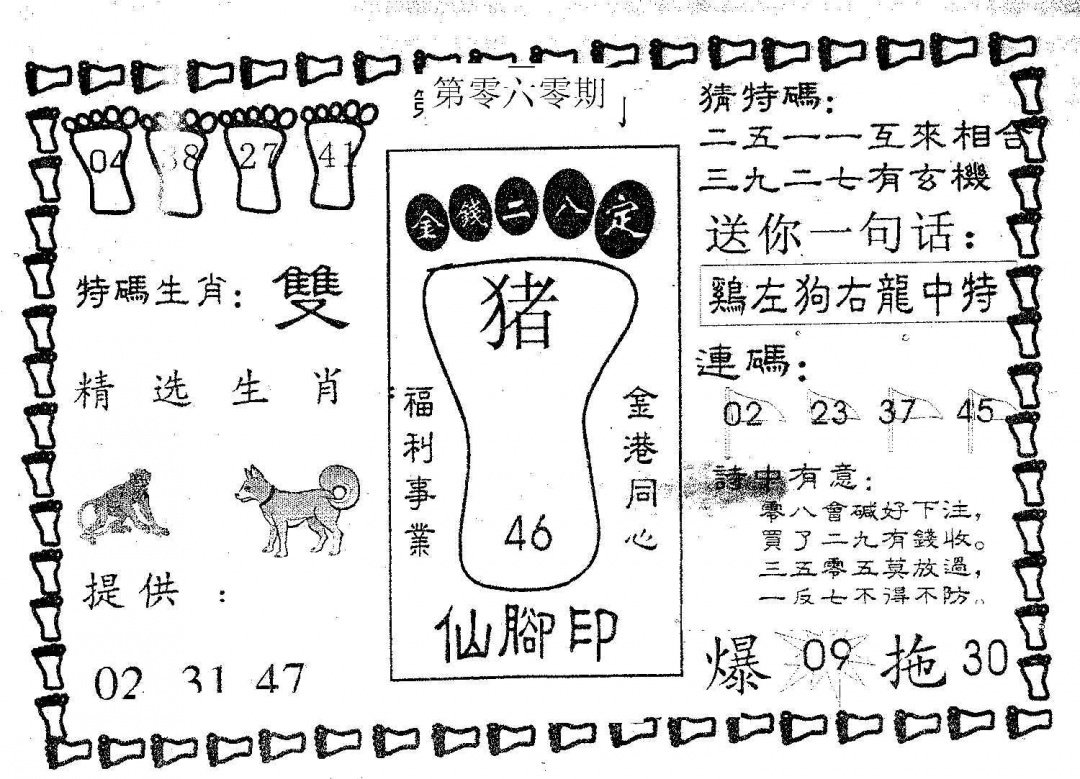 第零六零期
04 38 27 41
特碼生肖：雙
精选生肖
提供：
02 31 47
金錢二八定
猪
福利事業
金港同心
46
仙腳印
猜特碼：
二五一一互來相合
三九二七有玄機
送你一句话：
鷄左狗右龍中特
連碼：
02 23 37 45
詩中有意：
零八會碱好下注，
買了二九有錢收。
三五零五莫放過，
一反七不得不防。
爆 09 拖 30